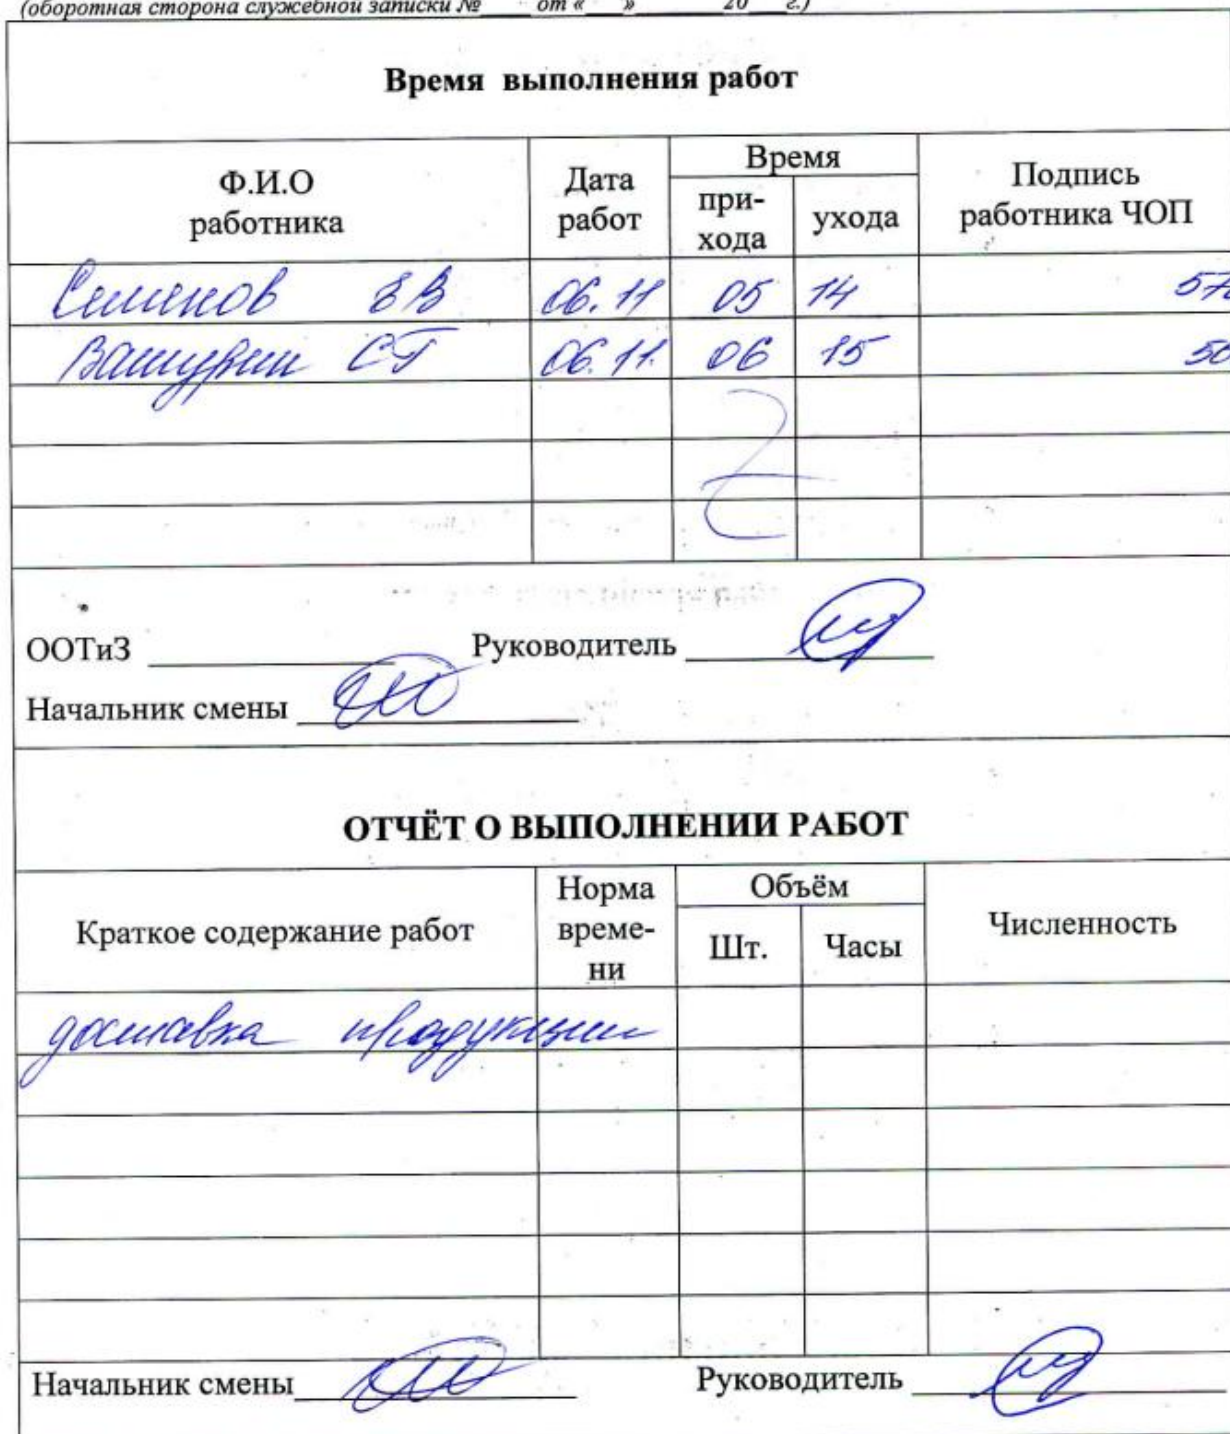 (оборотная сторона служебной записки № ____ от « ___ » ________ 20 ___ г.)
Время выполнения работ
Ф.И.О работника Дата работ Время Подпись работника ЧОП
при-хода ухода
Семенов ЕВ 06.11 05 14
Вашурин СГ 06.11. 06 15
ООТиЗ ____________ Руководитель ____________
Начальник смены ____________
ОТЧЁТ О ВЫПОЛНЕНИИ РАБОТ
Краткое содержание работ Норма време-ни Объём Численность
Шт. Часы
доставка продукции
Начальник смены ____________ Руководитель ____________